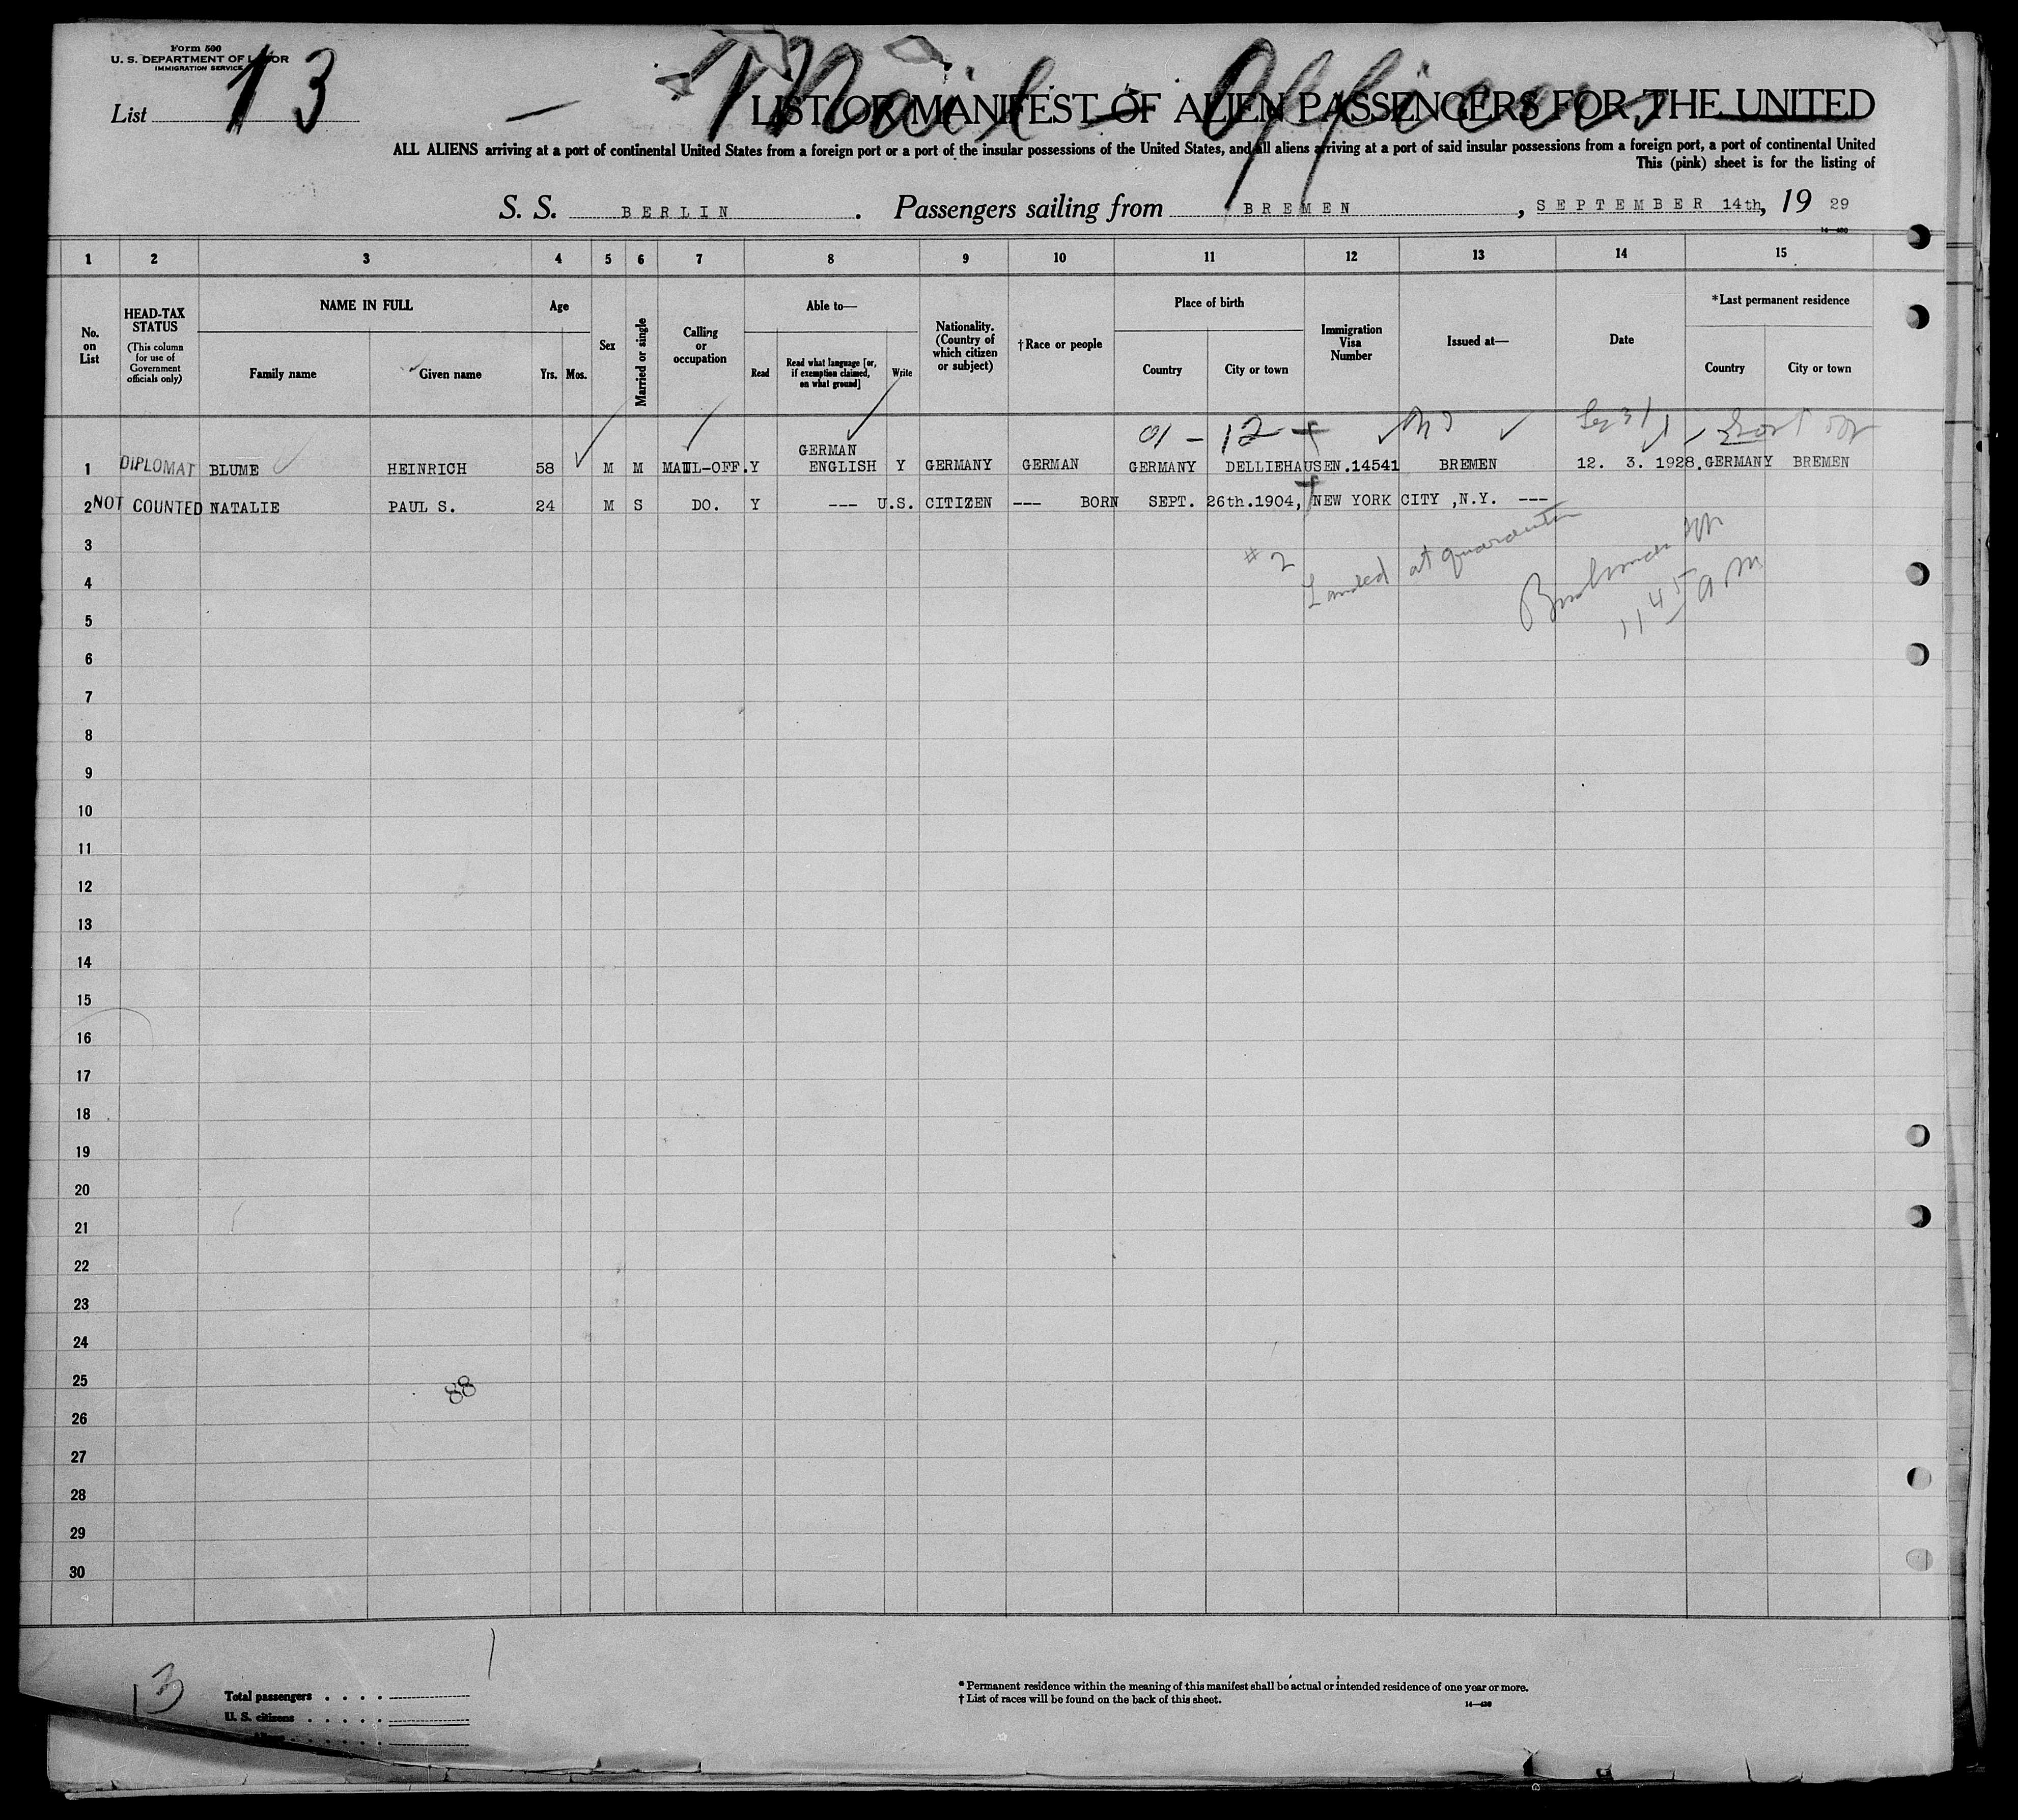 Form 500
U. S. DEPARTMENT OF LABOR
IMMIGRATION SERVICE
List 13
Mail - Officers
LIST OR MANIFEST OF ALIEN PASSENGERS FOR THE UNITED
ALL ALIENS arriving at a port of continental United States from a foreign port or a port of the insular possessions of the United States, and all aliens arriving at a port of said insular possessions from a foreign port, a port of continental United
This (pink) sheet is for the listing of
S. S. BERLIN. Passengers sailing from BREMEN, SEPTEMBER 14th, 19 29
1 2 3 4 5 6 7 8 9 10 11 12 13 14 15
No. on List
HEAD-TAX STATUS
(This column for use of Government officials only)
NAME IN FULL
Family name Given name
Age
Yrs. Mos.
Sex
Married or single
Calling or occupation
Able to—
Read
Read what language [or, if exemption claimed, on what ground]
Write
Nationality. (Country of which citizen or subject)
†Race or people
Place of birth
Country City or town
Immigration Visa Number
Issued at—
Date
*Last permanent residence
Country City or town
01 - 12 +
1 DIPLOMAT BLUME HEINRICH 58 M M MAIL-OFF. Y GERMAN ENGLISH Y GERMANY GERMAN GERMANY DELLIEHAUSEN. 14541 BREMEN 12. 3. 1928. GERMANY BREMEN
2 NOT COUNTED NATALIE PAUL S. 24 M S DO. Y --- U.S. CITIZEN --- BORN SEPT. 26th.1904, NEW YORK CITY ,N.Y. ---
3
#2 Landed at quarantin
4
1145 am
5
6
7
8
9
10
11
12
13
14
15
16
17
18
19
20
21
22
23
24
25
88
26
27
28
29
30
13
Total passengers . . . .
U. S. citizens . . . . .
*Permanent residence within the meaning of this manifest shall be actual or intended residence of one year or more.
†List of races will be found on the back of this sheet.